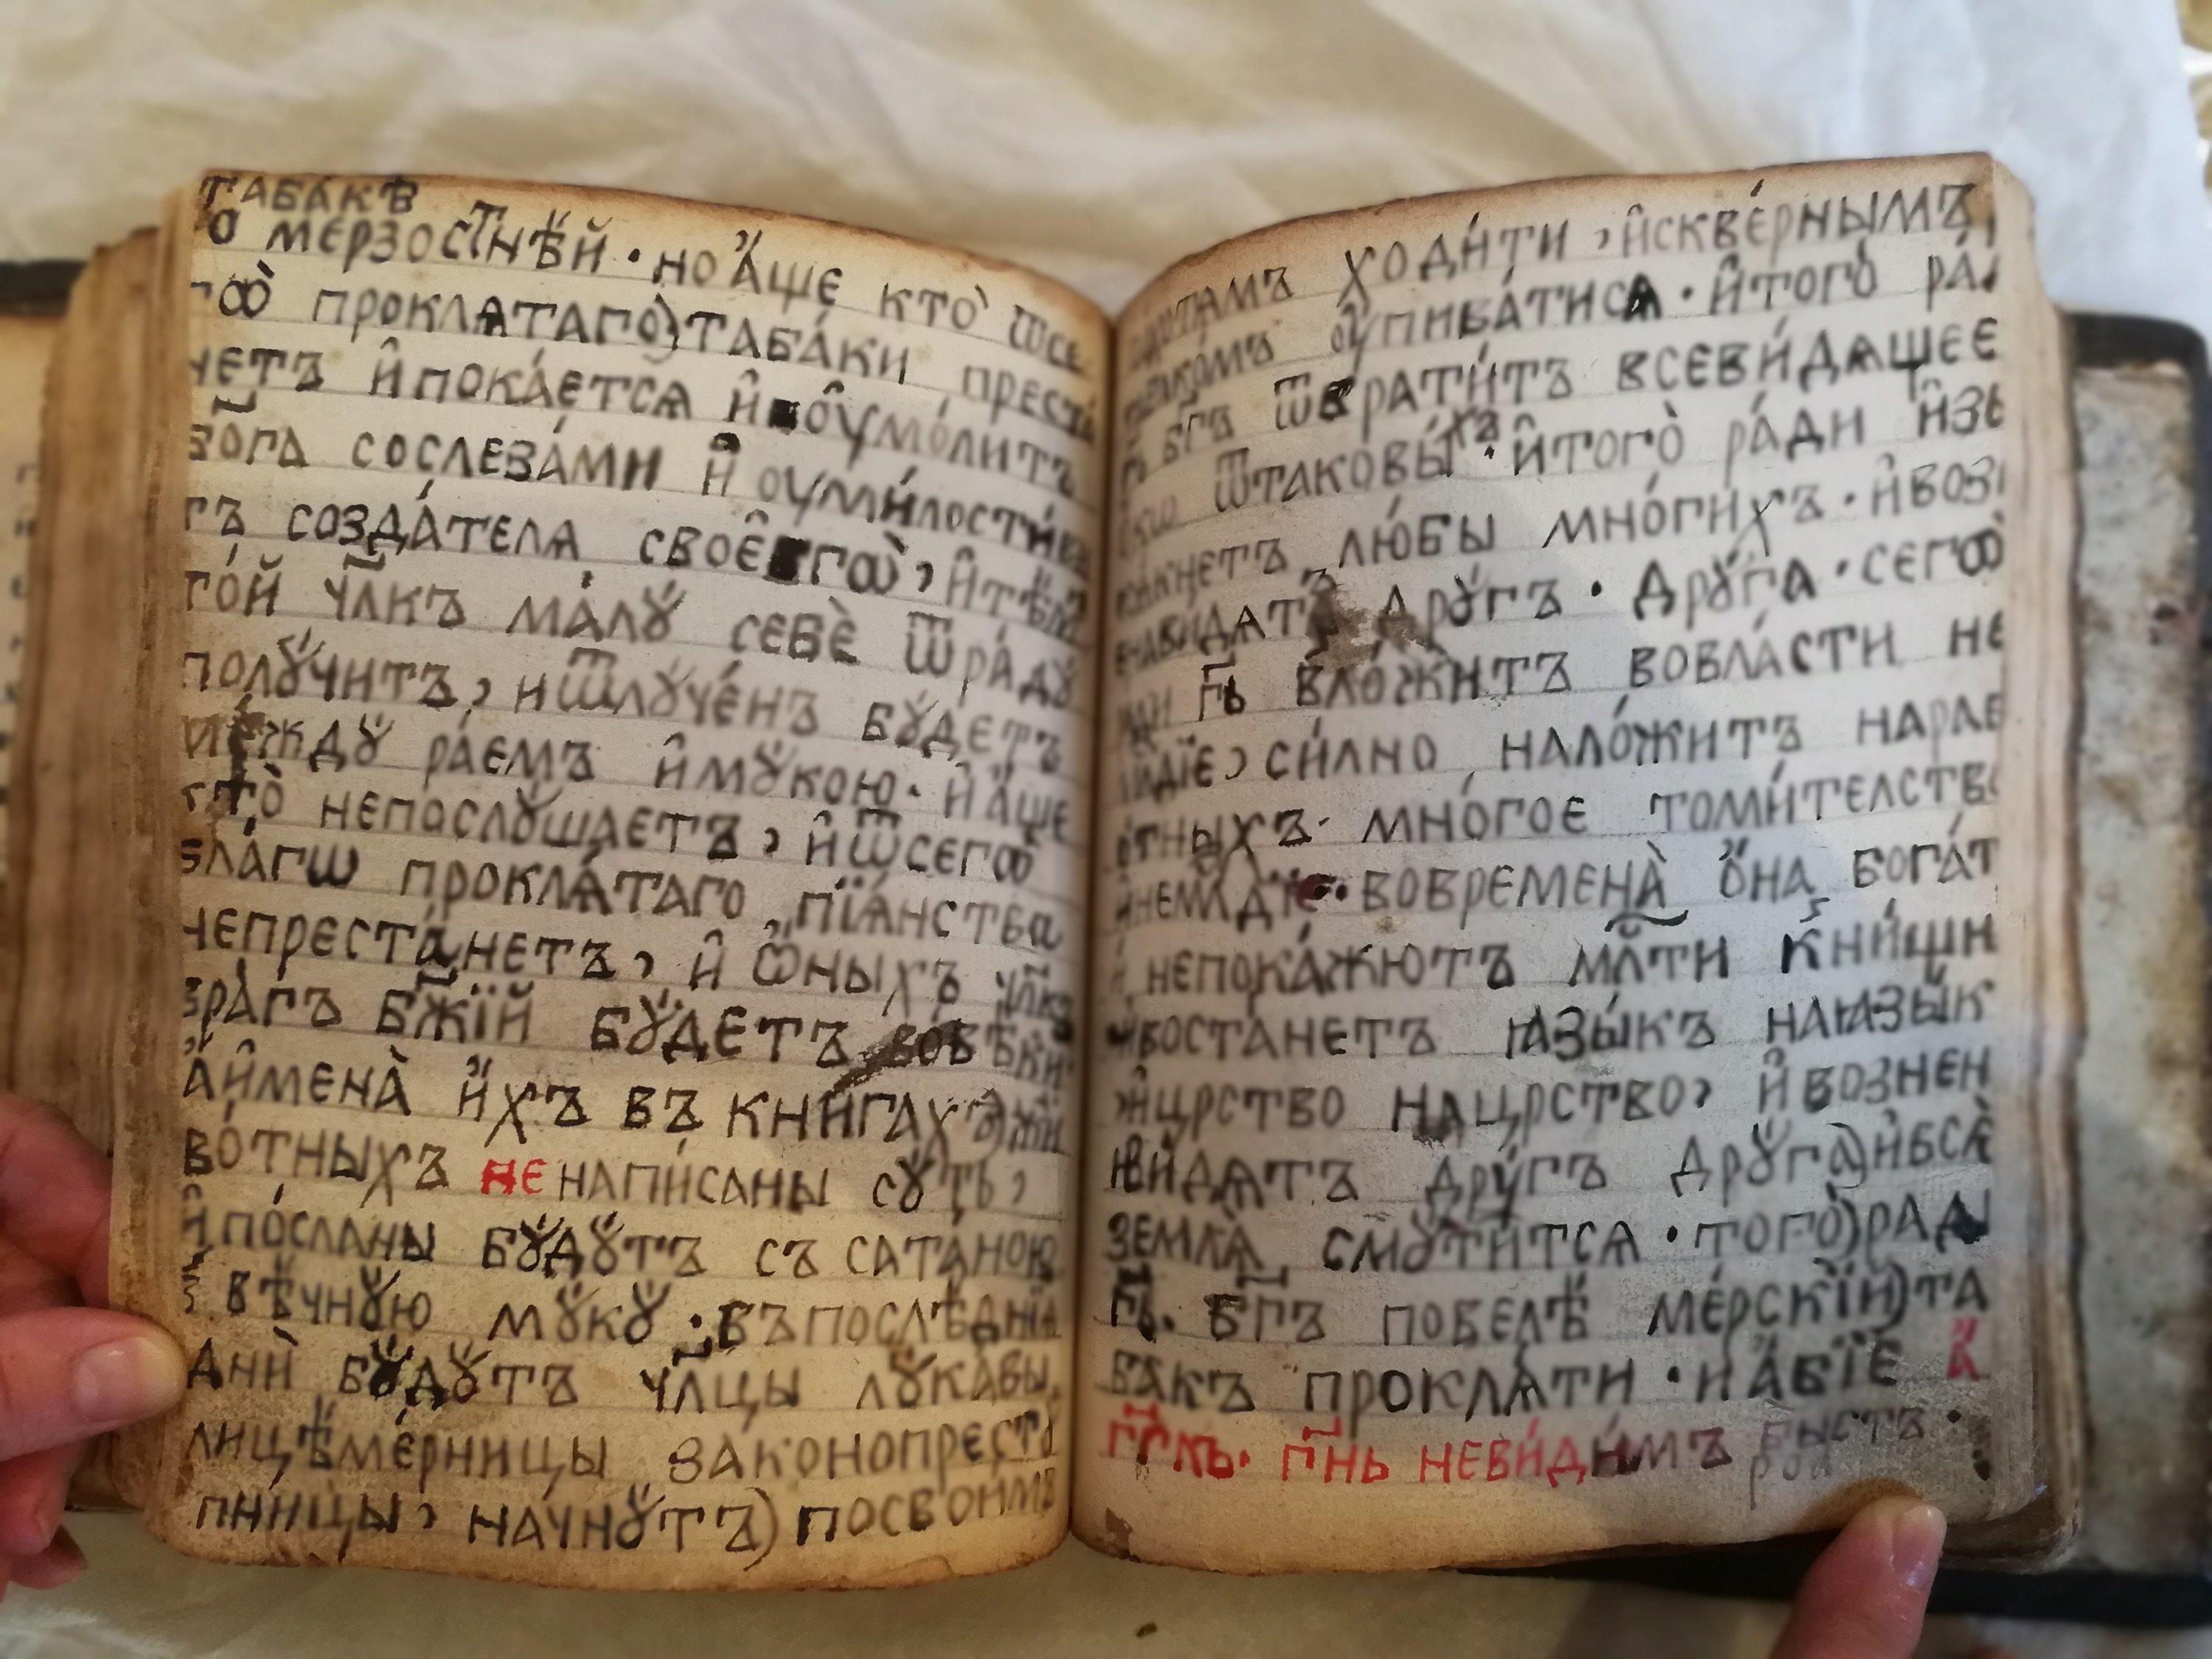 таба́кѣ
ѡ мерзостнѣ́й · но а҆́ще кто̀ ѿсе
гѡ̀ прокля́таго) таба́ки преста
нетъ и҆пока́етсѧ и҆ ᲂу҆мо́литъ
бо҃га сослеза́ми и҆ ᲂуми́лостиви
тъ созда́телѧ своє̂гѡ̀, и҆тѣ́мъ
то́й чл҃къ ма́лꙋ себѐ ѿра́дꙋ
полꙋ́читъ, и ѿлꙋче́нъ бꙋ́детъ
ме́ждꙋ ра́емъ и҆мꙋ́кою · и҆ а҆́ще
кто̀ непослꙋ́шаетъ, и҆ ѿсегѡ̀
зла́гѡ проклѧ́таго пїѧ́нства
непреста́нетъ, и҆ ѻ҆́ныхъ чл҃къ
вра́гъ бж҃їй бꙋ́детъ вовѣ́ки·
а҆и҆мена̀ и҆́хъ въ кни́гахъ) жи
во́тныхъ не напи́саны сꙋ́ть,
и҆по́сланы бꙋ́дꙋтъ съ сатано́ю
вѣ́чнꙋю мꙋ́кꙋ · въпослѣ́днїѧ
дни̇̀ бꙋ́дꙋтъ чл҃цы лꙋка́вы
лицѣме́рницы законопрестꙋ
пницы, начнꙋ́тъ) посвои́мъ
ходи́ти, и҆скве́рнымъ
ᲂу҆пива́тисѧ · и҆того̀ ра́
бг҃ъ ѿврати́тъ всеви́дѧщее
ѿтаковы́хъ · и҆того̀ ра́ди и҆зсѧ
лю́бы мно́гихъ · и҆воз
дрꙋ́гъ · дрꙋ́га · сегѡ̀
гь҃ вло́житъ вовла́сти не
си́лно нало́житъ нарае
отныхъ мно́гое томи́телство
вовремена̀ ѻ҆́на бога́т
непока́жютъ мл҃ти кни́щи
воста́нетъ ꙗзы́къ наꙗзы́к
и҆црство нацрство, и҆возне́н
ви́дѧтъ дрꙋ́гъ дрꙋ́га) и҆всѐ
землѧ̀ смꙋти́тсѧ · того̀) ради
гь҃. бг҃ъ повелѣ̀ ме́рскїй) та
ба́къ проклѧ́ти · и а҆́бїе а҆́
гг҃лъ· гн҃ь неви́димъ бысть ·